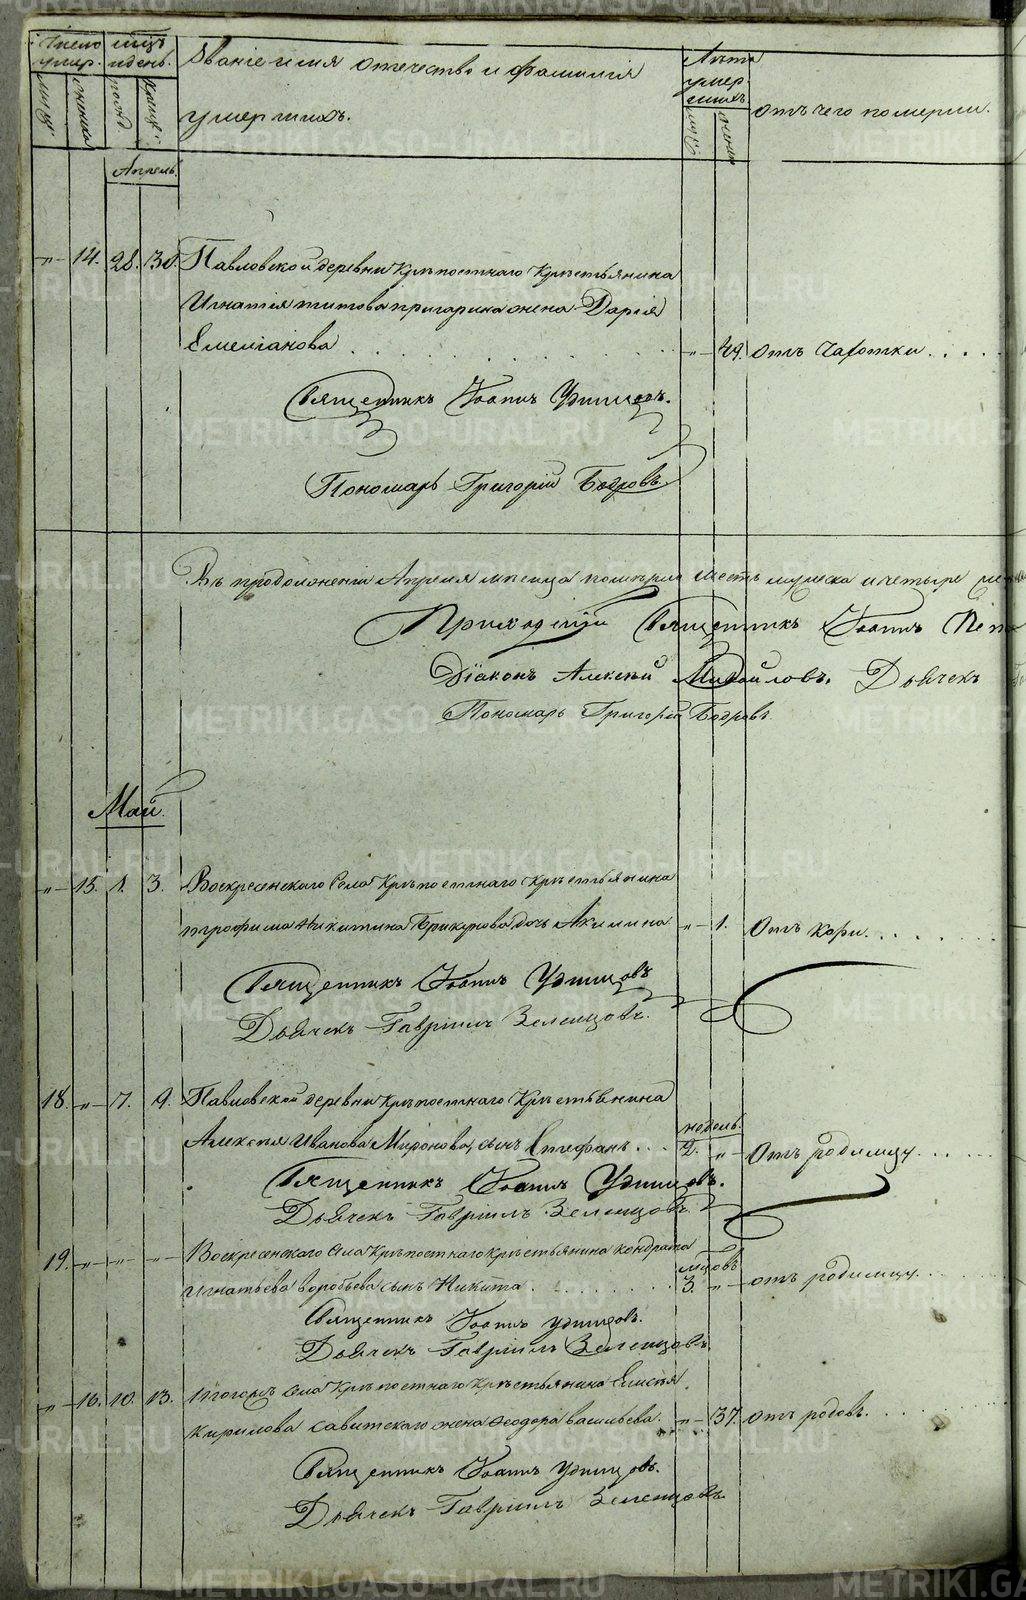 Число умер.
мцъ и день.
Званіе имя отечество и фамилія
умершихъ.
Лѣта умер-
шихъ
отъ чего померли.
муж.
женска
муж.
женск
Апрель.
"
14.
28.
30.
Павловской деревни крѣпостнаго крѣстьянина
Игнатія титова пригарина жена Дарія
Емеліанова
"
49.
отъ чахотки
Священникъ Іоаннъ Удинцовъ.
Пономарь Григорій Бодровъ.
Въ продолженіи Апреля месеца померло шесть мужеска и четыре
Приходскій Священникъ Іоаннъ
Діаконъ Алексѣй Михайловъ. Дьячекъ
Пономарь Григорій Бодровъ.
Май
"
15.
1.
3.
Воскресенскаго Села крѣпостнаго крѣстьянина
трофима Никитина дочь Акилина
"
1.
Отъ кори.
Священникъ Іоаннъ Удинцовъ
Дьячекъ Гавріилъ Зеленцовъ.
18.
"
7.
9.
Павловской деревни крѣпостнаго крѣстьянина
Алексѣя Иванова Миронова, сынъ Стефанъ
недель.
2.
"
Отъ родимцу
Священникъ Іоаннъ Удинцовъ.
Дьячекъ Гавріилъ Зеленцовъ.
19.
"
"
"
Воскресенскаго Села крѣпостнаго крѣстьянина кондрата
игнатьева воробьева сынъ Никита
мцовъ
3.
"
отъ родимцу.
Священникъ Іоаннъ удинцовъ.
Дьячекъ Гавріилъ Зеленцовъ.
"
16.
10.
13.
тогожъ Села крѣпостнаго крѣстьянина Елисѣя
кирилова савитскаго жена Феодора васильева.
"
37.
отъ родовъ.
Священникъ Іоаннъ Удинцовъ.
Дьячекъ Гавріилъ Зеленцовъ.
METRIKI.GASO-URAL.RU